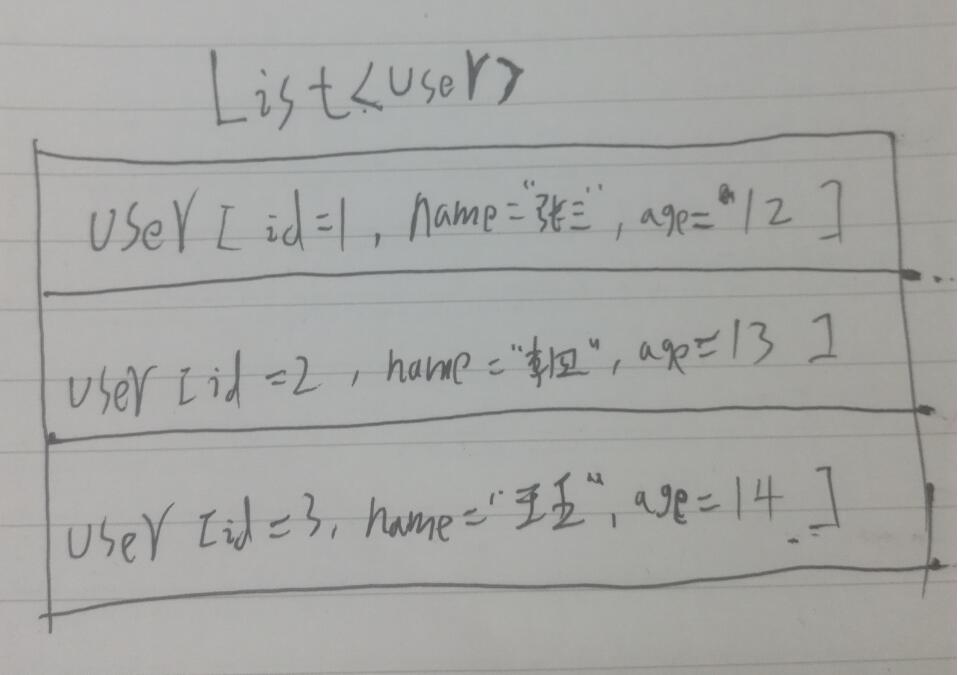 List<User>
User [ id=1, name="张三", age="12 ]
User [id=2, name="李四", age=13 ]
User [id=3, name="王五", age=14 ]